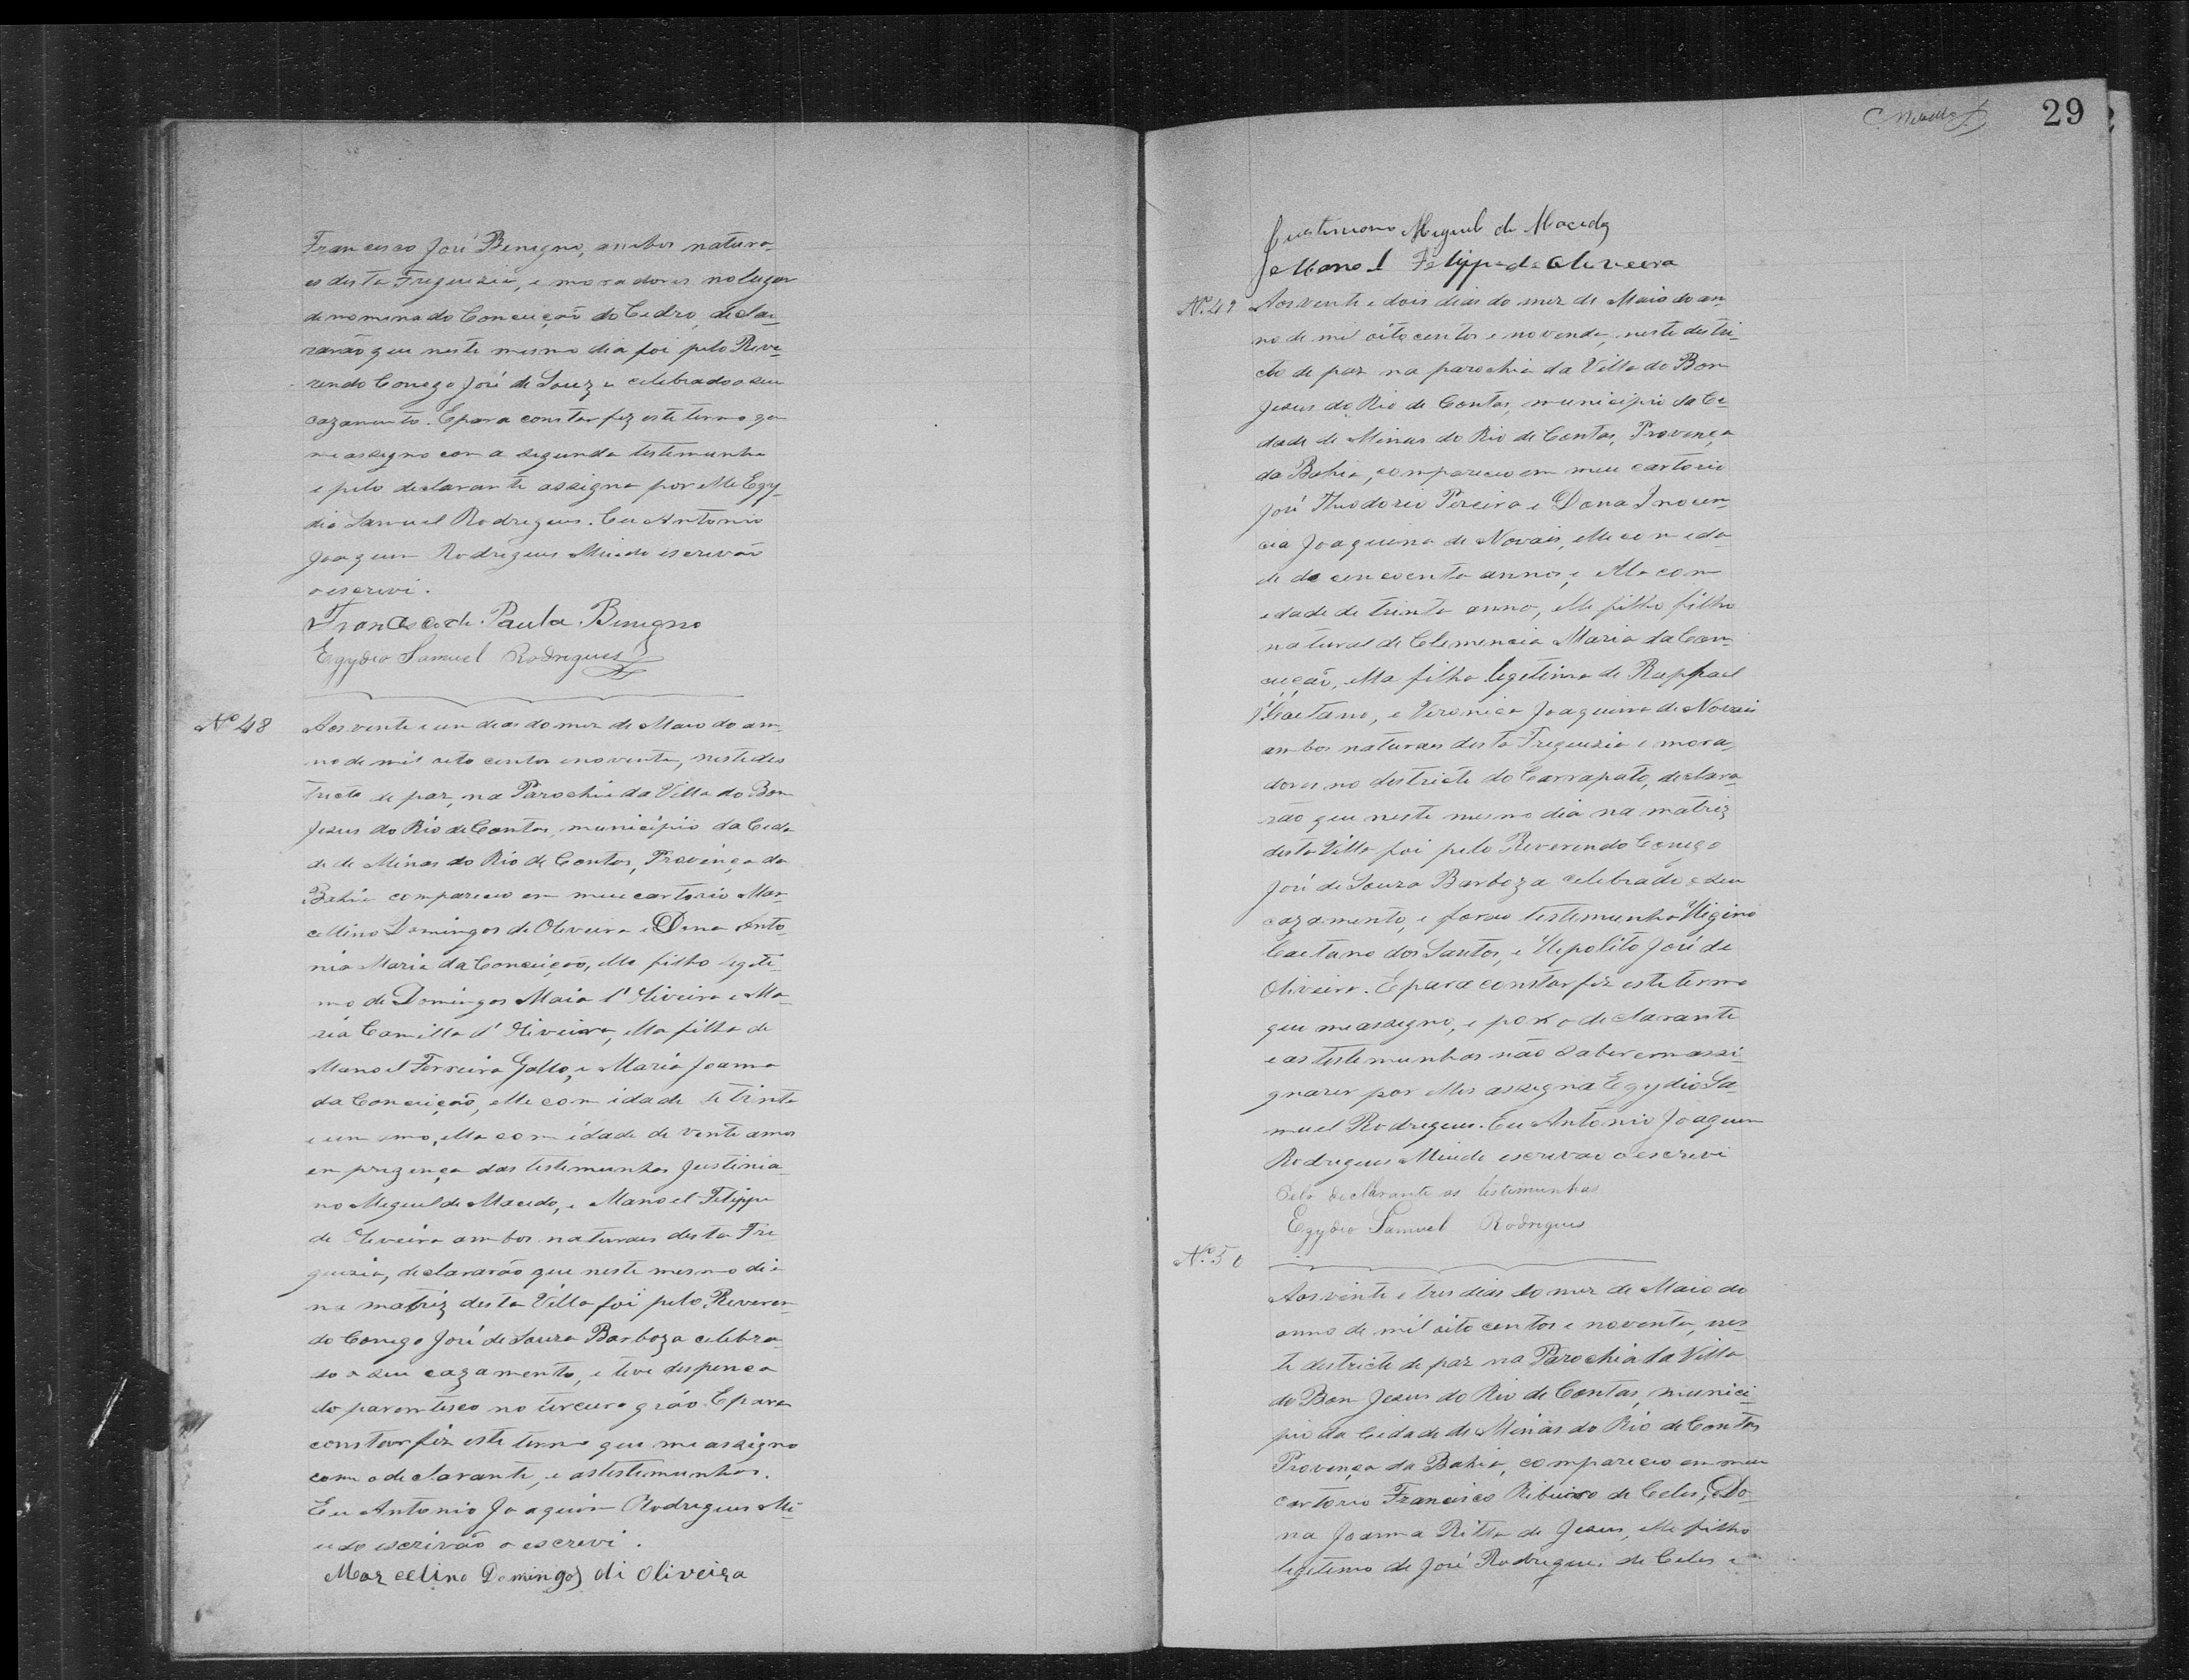 Francisco José Benigno, ambos natura-
es desta Freguezia, e moradores no lugar
denominado Conceição do Cedro, decla-
rarão que neste mesmo dia foi pelo Reve-
rendo Conego José de Souza celebrado o seu
cazamento. E para constar fiz este termo que
me assigno com a segunda testemunha
e pelo declarante assigna por elle Egy-
dio Samuel Rodrigues. Eu Antonio
Joaquim Rodrigues Miudo escrivão
o escrevi.
Francisco de Paula Binigno
Egydio Samuel Rodrigues
Nº 48
Aos vente e um dias do mez de Maio do an-
no de mil oito centos e noventa, neste des
tricto de paz, na Parochia da Villa do Bom
Jesus do Rio de Contas, municipio da Cida
de de Minas do Rio de Contas, Provinça da
Bahia compareceo em meu cartorio Mar
cellino Domingos de Oliveira e Dona Anto-
nia Maria da Conceição, elle filho legiti-
mo de Domingos Maia d'Oliveira e Ma-
ria Camilla d'Oliveira, ella filha de
Manoel Ferreira Gallo, e Maria Joanna
da Conceição, elle com idade de trinta
e um anno, ella com idade de vente annos
em prezença das testemunhas Justinia
no Miguel de Macedo, e Manoel Felippe
de Oliveira ambos naturaes desta Fre
guezia, declararão que neste mesmo dia
na matriz desta Villa foi pelo Reveren-
do Conego José de Souza Barboza celebra-
do o seu cazamento, e teve despença
do parentesco no terceiro gráo. E para
constar fiz este termo que me assigno
com o declarante, e as testemunhas.
Eu Antonio Joaquim Rodrigues Mi-
udo escrivão o escrevi.
Marcelino Domingos di Oliveira
29
Justiniano Miguel de Macedo
Manoel Felippe de Oliveira
Nº 49
Aos vente e dois dias do mez de Maio do an-
no de mil oito centos e noventa, neste destri-
cto de paz na parochia da Villa do Bom
Jesus do Rio de Contas, municipio da Ci-
dade de Minas do Rio de Contas, Provença
da Bahia, compareceo em meu cartorio
José Theodorio Pereira e Dona Inocen-
cia Joaquina de Novais, elle com ida-
de de cencoenta annos, e ella com
edade de trinta anno, elle filho, filho
natural de Clemencia Maria da Con-
ceição, ella filha legitima de Raphael
Caetano, e Veronica Joaquina de Novais
ambos naturaes desta Freguezia e mora-
dores no destricto do Carrapato, declara
rão que neste mesmo dia na matriz
desta Villa foi pelo Reverendo Conego
José de Souza Barboza celebrado o seu
cazamento, e forão testemunhas Higino
Caetano dos Santos, e Hepolito José de
Oliveira. E para constar fiz este termo
que me assigno, e por o declarante
e as testemunhas não saberem assi-
gnarem por elles assigna Egydio Sa-
muel Rodrigues. Eu Antonio Joaquim
Rodrigues Miudo escrivão o escrevi
Pelo declarante as testemunhas
Egydio Samuel Rodrigues
Nº 50
Aos vinte e tres dias do mez de Maio do
anno de mil oito centos e noventa, nes-
te destricto de paz na Parochia da Villa
do Bom Jesus do Rio de Contas, munici-
pio da Cidade de Minas do Rio de Contas
Provença da Bahia, compareceo em meu
cartorio Francisco Ribeiro de Celes, e Do-
na Joanna Ritta de Jesus, elle filho
legitimo de José Rodrigues de Celes e